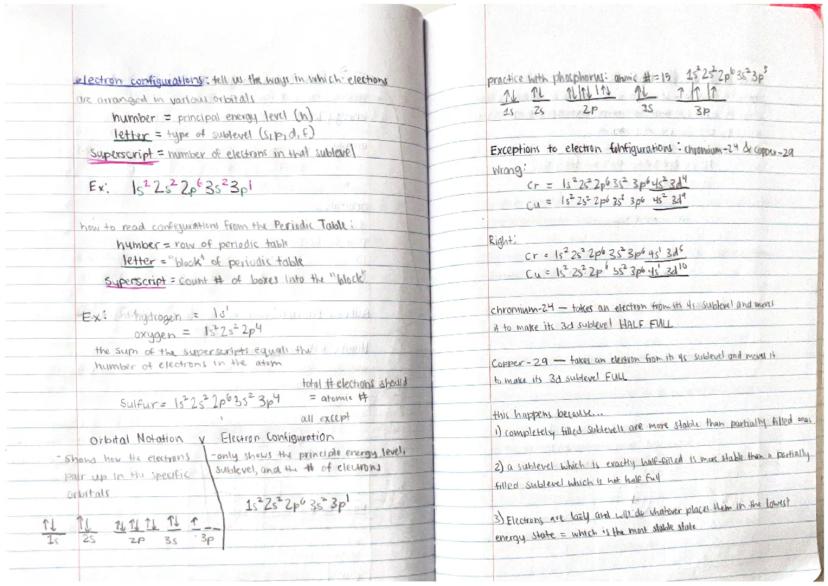 electron configurations: tell us the ways in which electrons
are arranged in various orbitals
number = principal energy level (n)
letter = type of sublevel (s, p, d, f)
superscript = number of electrons in that sublevel
Ex: 1s² 2s² 2p⁶ 3s² 3p¹
how to read configurations from the Periodic Table:
number = row of periodic table
letter = "block" of periodic table
superscript = count # of boxes into the "block"
Ex: hydrogen = 1s¹
oxygen = 1s² 2s² 2p⁴
the sum of the superscripts equals the
number of electrons in the atom
total # electrons should
Sulfur = 1s² 2s² 2p⁶ 3s² 3p⁴ = atomic #
all except
Orbital Notation v Electron Configuration
- shows how the electrons
pair up in the specific
orbitals
- only shows the principle energy level,
sublevel, and the # of electrons
1s² 2s² 2p⁶ 3s² 3p¹
↑↓ ↑↓ ↑↓ ↑↓ ↑↓ ↑↓ ↑ _ _
1s 2s 2p 3s 3p
practice with phosphorus: atomic # = 15 1s² 2s² 2p⁶ 3s² 3p³
↑↓ ↑↓ ↑↓ ↑↓ ↑↓ ↑↓ ↑ ↑ ↑
1s 2s 2p 3s 3p
Exceptions to electron configurations: chromium-24 & copper-29
Wrong:
Cr = 1s² 2s² 2p⁶ 3s² 3p⁶ 4s² 3d⁴
Cu = 1s² 2s² 2p⁶ 3s² 3p⁶ 4s² 3d⁹
Right:
Cr = 1s² 2s² 2p⁶ 3s² 3p⁶ 4s¹
Cu = 1s² 2s² 2p⁶ 3p⁶ 4s¹ 3d¹⁰
chromium-24 — takes an electron from its 4s sublevel and moves
it to make its 3d sublevel HALF FULL
Copper-29 — takes an electron from its 4s sublevel and moves it
to make its 3d sublevel FULL
this happens because...
1) completely filled sublevels are more stable than partially filled ones
2) a sublevel which is exactly half-filled is more stable than a partially
filled sublevel which is not half full
3) Electrons are lazy and will do whatever places them in the lowest
energy state = which is the most stable state